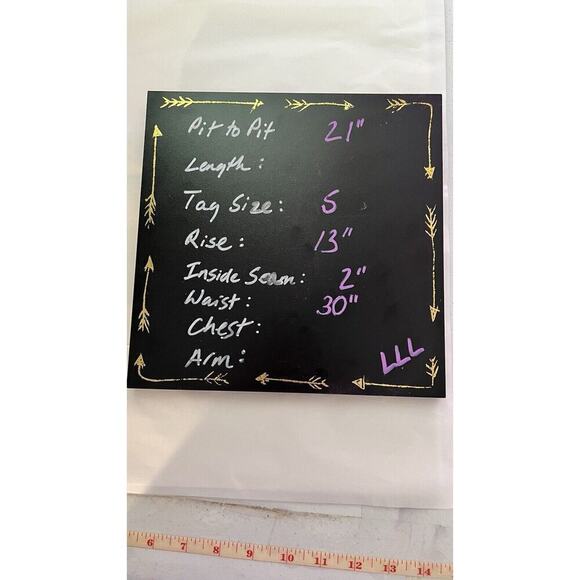 Pit to Pit 21"
Length:
Tag Size: S
Rise: 13"
Inside Seam: 2"
Waist: 30"
Chest:
Arm:
LLL
6 7 8 9 10 11 12 13 14